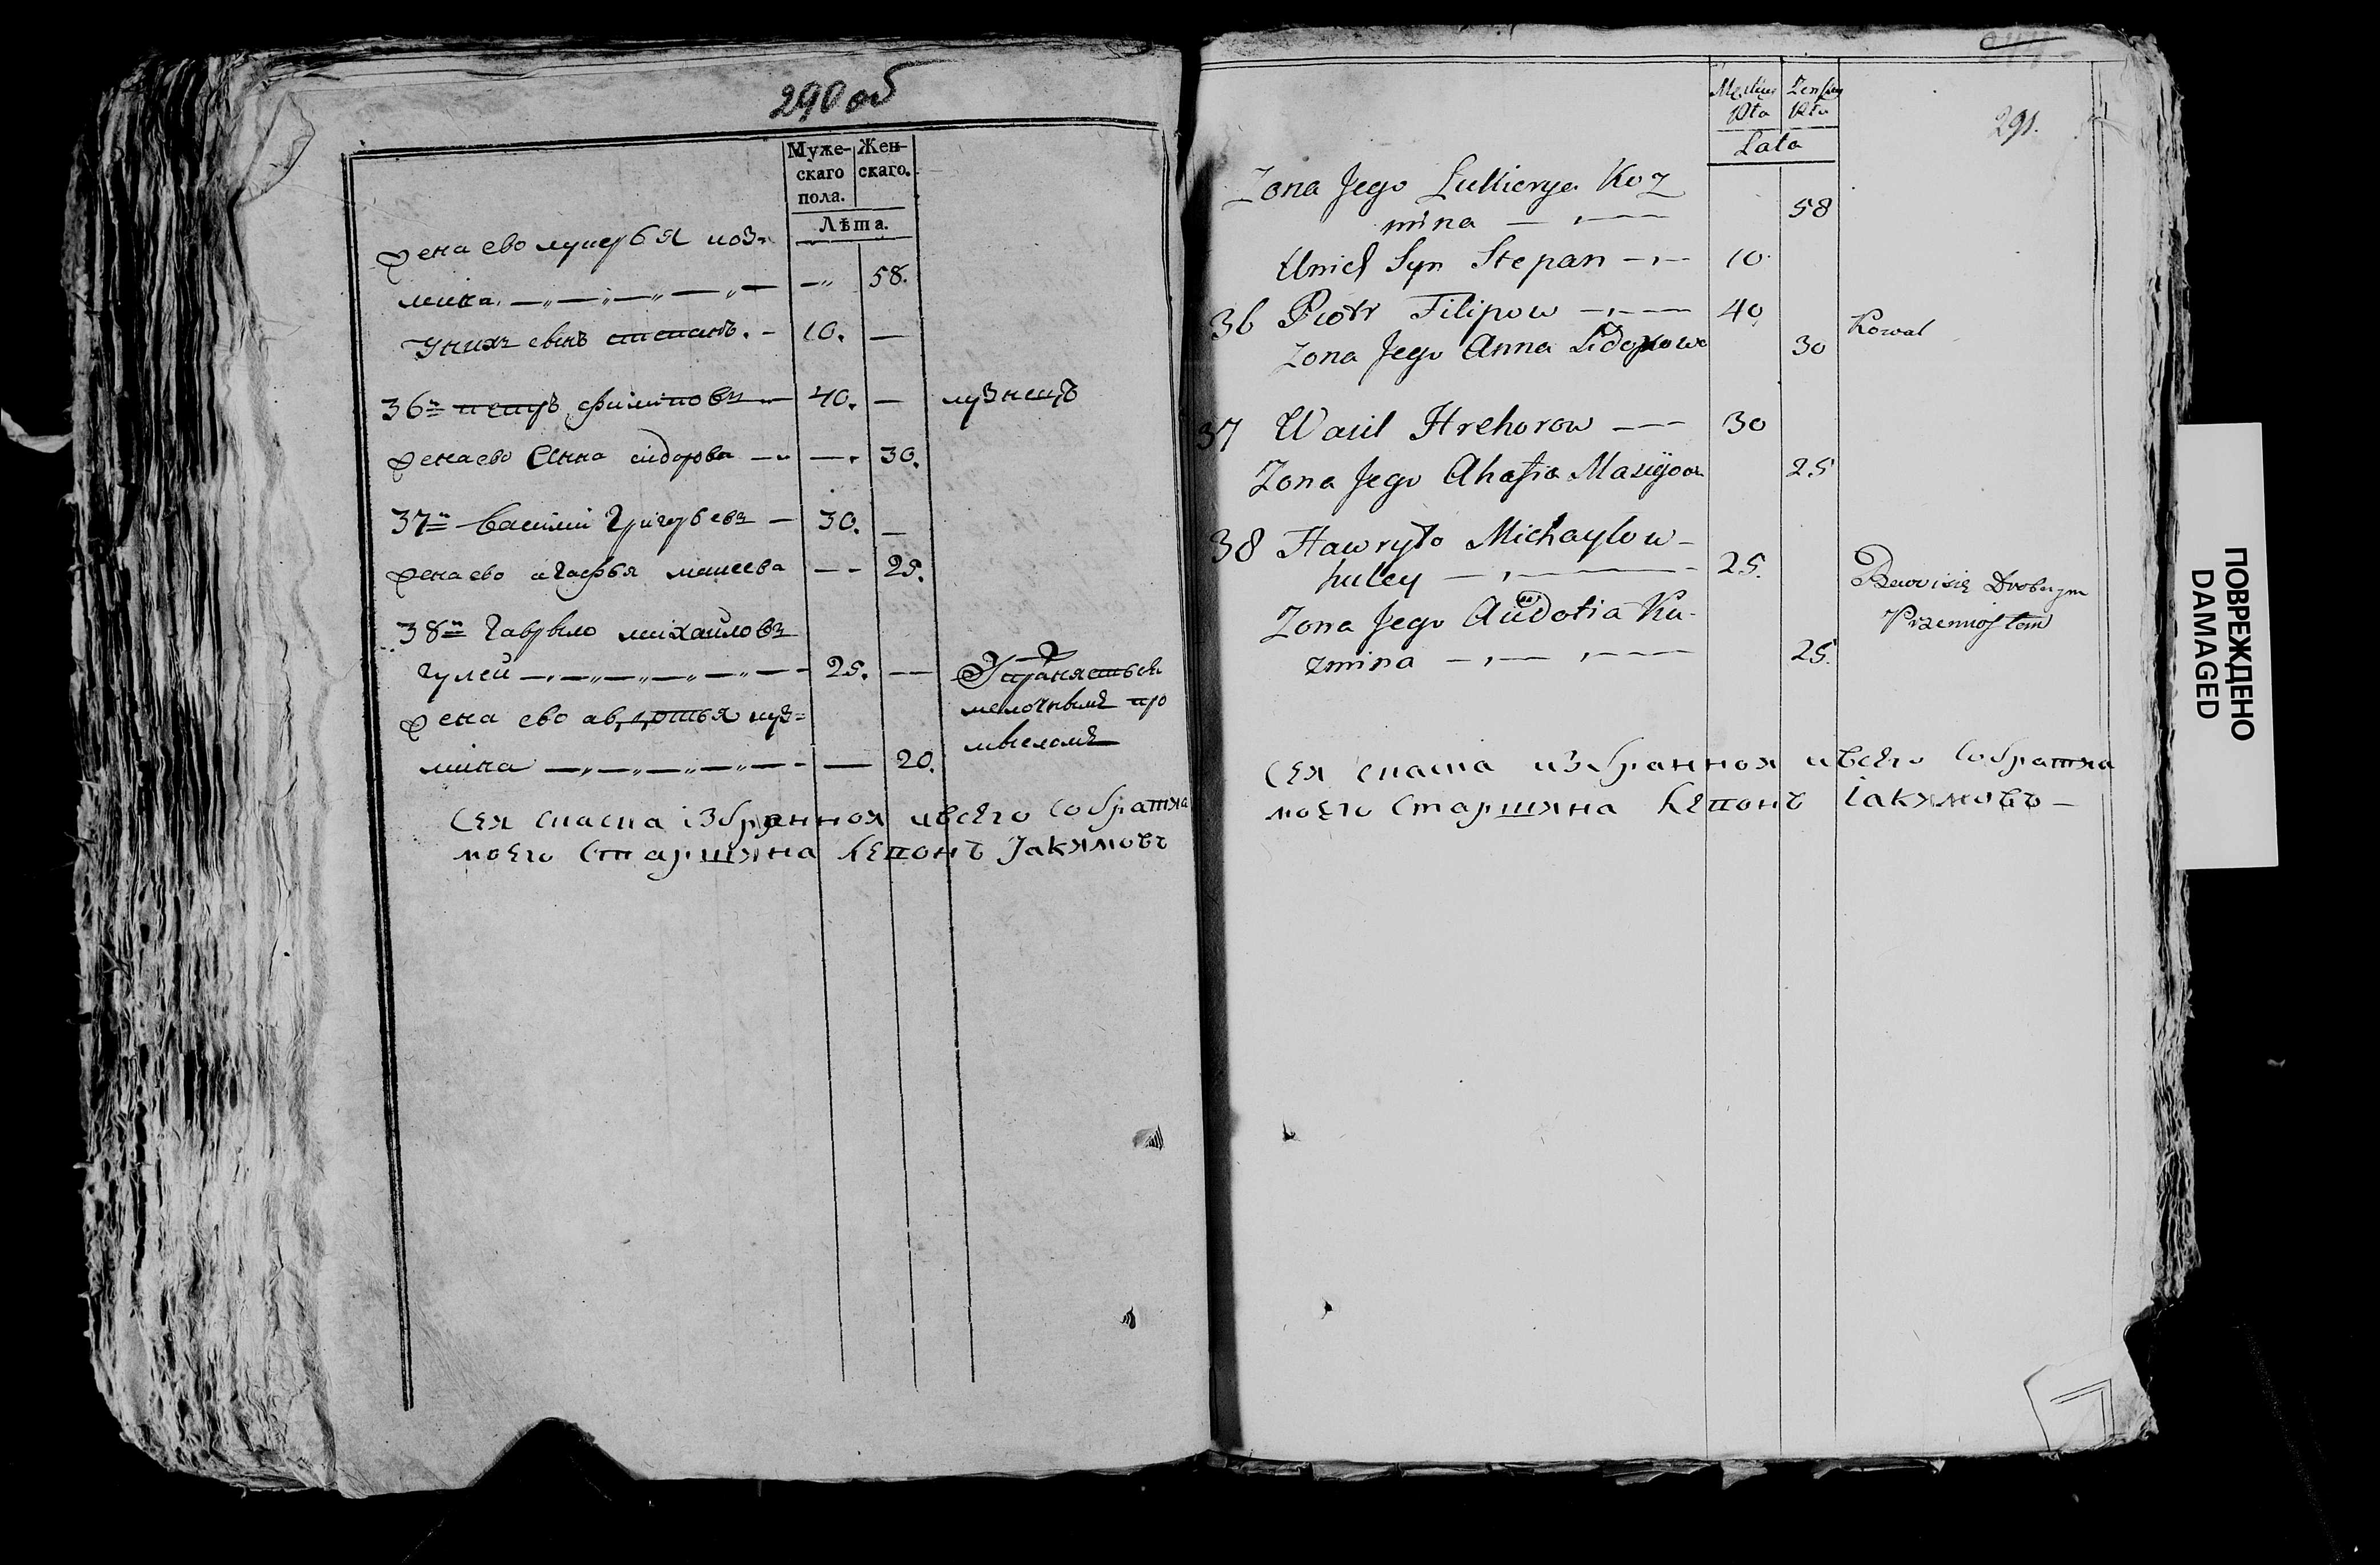 290 об
Муже- Жен-
скаго скаго.
пола.
Лѣта.
Жена ево лукерья коз-
мина. — „ — „ — „ — „ — — „ 58.
У них сынъ степанъ. - 10. —
36-й петръ филиповъ — 40. — кузнецъ
Жена ево Анна сидорова — „ — „ 30.
37-й василий Григорьевъ — 30. —
Жена ево агафья мосеева — — 25.
38-й Гаврыло михайловъ
Гулей — „ — „ — „ — „ — 25. — Упражняеться
мелочнымъ про
мысломъ
Жена ево авдотья куз=
мина — „ — „ — „ — „ — — 20.
Сея спаспа избранноя ивсего собратяа
моего Старшяна Кепонъ Јакимовъ
291.
Męskiey Żeńskiey
Płci Płci
Lata
Zona Jego Lukierya Koz
mina — , — 58
Unich Syn Stepan — , — 10.
36 Piotr Filipow — , — 40 Kowal
Zona Jego Anna Sidorowa 30
37 Wasil Hrehorow — — 30
Zona Jego Ahafia Masiijowa 25
38 Hawryło Michayłow-
huley — , — 25. Bawi się Drobnym
Przemysłem
Zona Jego Audotia Ku-
zmina — , — , — 25.
Сея спаспа избранноя ивсего собратяа
моего Старшяна Кепонъ Іакимовъ —
ПОВРЕЖДЕНО
DAMAGED